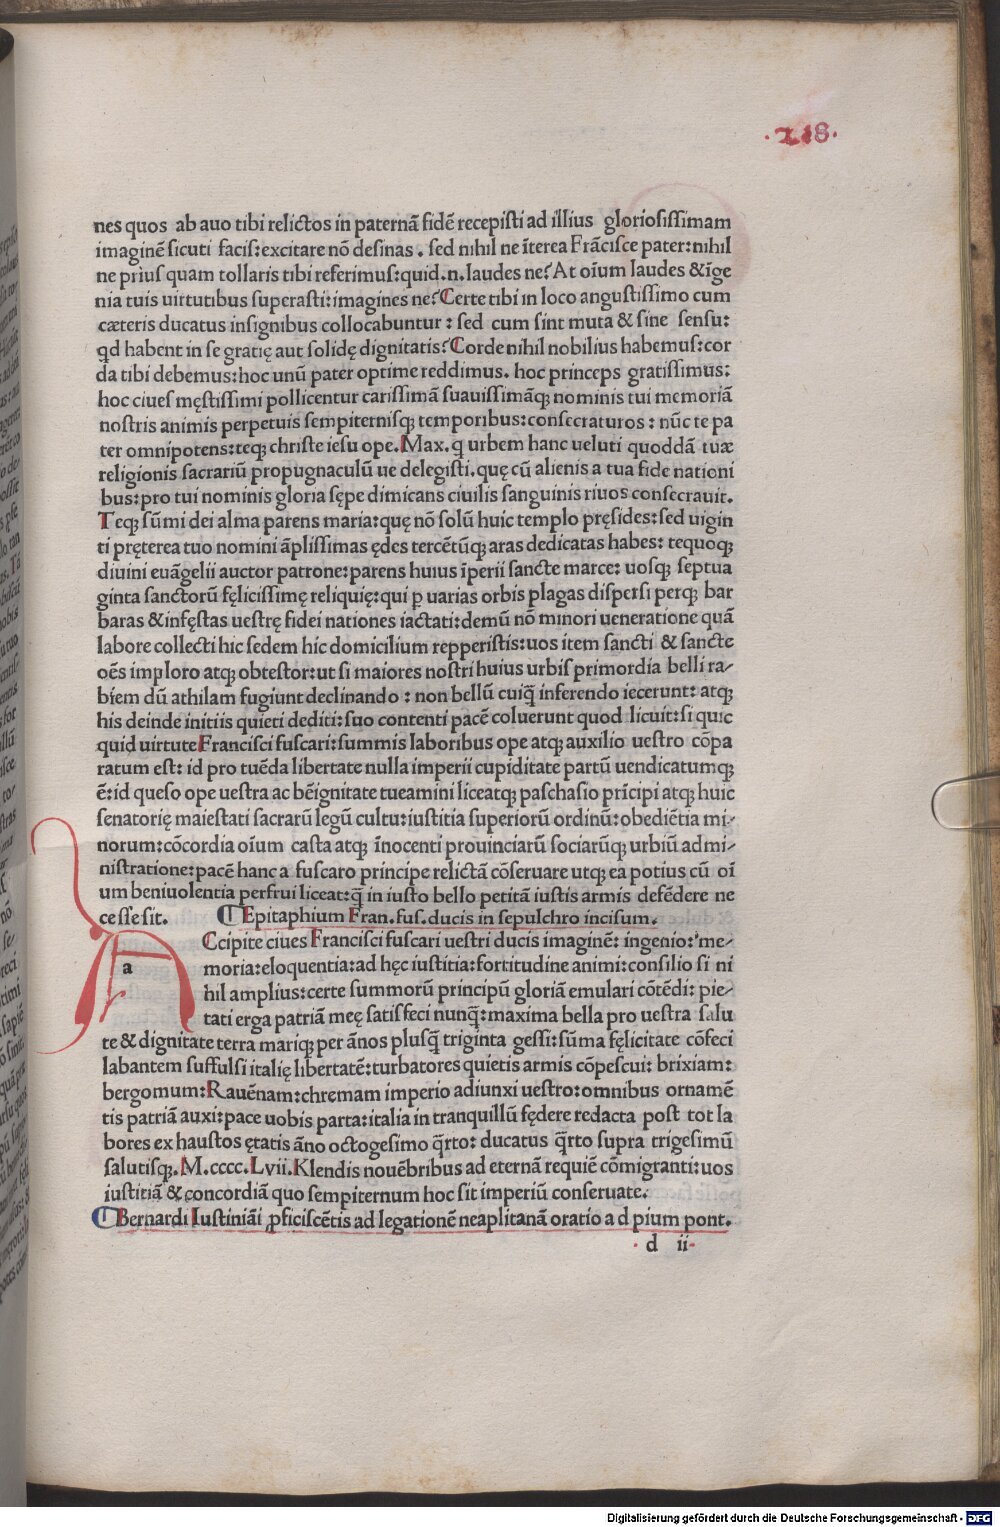 ·218·
nes quos ab auo tibi relictos in paternã fidẽ recepisti ad illius gloriosissimam
imaginẽ sicuti facis: excitare nõ desinas . sed nihil ne ĩterea Frãcisce pater: nihil
ne prius quam tollaris tibi referimus: quid.n. laudes ne? At oĩum laudes & ĩge
nia tuis uirtutibus superasti: imagines ne? Certe tibi in loco angustissimo cum
cæteris ducatus insignibus collocabuntur: sed cum sint muta & sine sensu:
qd habent in se gratię aut solidę dignitatis? Corde nihil nobilius habemus: cor
da tibi debemus: hoc unũ pater optime reddimus. hoc princeps gratissimus:
hoc ciues męstissimi pollicentur carissimã suauissimãqȝ nominis tui memoriã
nostris animis perpetuis sempiternisqȝ temporibus: consecraturos: nũc te pa
ter omnipotens: teqȝ christe iesu ope. Max. q urbem hanc ueluti quoddã tuæ
religionis sacrariũ propugnaculũ ue delegisti. quę cũ alienis a tua fide nationi
bus: pro tui nominis gloria sępe dimicans ciuilis sanguinis riuos consecrauit.
Teqȝ sũmi dei alma parens maria: quę nõ solũ huic templo pręsides: sed uigin
ti pręterea tuo nomini ãplissimas ędes tercẽtũqȝ aras dedicatas habes: tequoqȝ
diuini euãgelii auctor patrone: parens huius ĩperii sancte marce: uosqȝ septua
ginta sanctorũ fęlicissimę reliquię: qui ꝑ uarias orbis plagas dispersi perqȝ bar
baras & infęstas uestrę fidei nationes iactati: demũ nõ minori ueneratione quã
labore collecti hic sedem hic domicilium repperistis: uos item sancti & sancte
oẽs imploro atqȝ obtestor: ut si maiores nostri huius urbis primordia belli ra-
biem dũ athilam fugiunt declinando: non bellũ cuiq̃ inferendo iecerunt: atqȝ
his deinde initiis quieti dediti: suo contenti pacẽ coluerunt quod licuit: si quic
quid uirtute Francisci fuscari: summis laboribus ope atqȝ auxilio uestro cõpa
ratum est: id pro tuẽda libertate nulla imperii cupiditate partũ uendicatumqȝ
ẽ: id queso ope uestra ac bẽignitate tueamini liceatqȝ paschasio prĩcipi atqȝ huic
senatorię maiestati sacrarũ legũ cultu: iustitia superiorũ ordinũ: obediẽtia mi-
norum: cõcordia oĩum casta atqȝ ĩnocenti prouinciarũ sociarũqȝ urbiũ admi-
nistratione: pacẽ hanc a fuscaro principe relictã cõseruare utqȝ ea potius cũ oĩ
um beniuolentia perfrui liceat: q̃ in iusto bello petitã iustis armis defẽdere ne
cesse sit. ¶ Epitaphium Fran. fus. ducis in sepulchro incisum.
a
Ccipite ciues Francisci fuscari uestri ducis imaginẽ: ingenio: me-
moria: eloquentia: ad hęc iustitia: fortitudine animi: consilio si ni
hil amplius: certe summorũ principũ gloriã emulari cõtẽdi: pie-
tati erga patriã meę satisfeci nunq̃: maxima bella pro uestra salu
te & dignitate terra mariqȝ per ãnos plusq̃ triginta gessi: sũma fęlicitate cõfeci
labantem suffulsi italię libertatẽ: turbatores quietis armis cõpescui: brixiam:
bergomum: Rauẽnam: chremam imperio adiunxi uestro: omnibus ornamẽ
tis patriã auxi: pace uobis parta: italia in tranquillũ fędere redacta post tot la
bores ex haustos ętatis ãno octogesimo q̃rto: ducatus q̃rto supra trigesimũ
salutisqȝ. M.cccc.Lvii. Klendis nouẽbribus ad eternã requiẽ cõmigranti: uos
iustitiã & concordiã quo sempiternum hoc sit imperiũ conseruate.
¶ Bernardi Iustiniãi ꝓficiscẽtis ad legationẽ neaplitanã oratio ad pium pont.
d ii
Digitalisierung gefördert durch die Deutsche Forschungsgemeinschaft - DFG